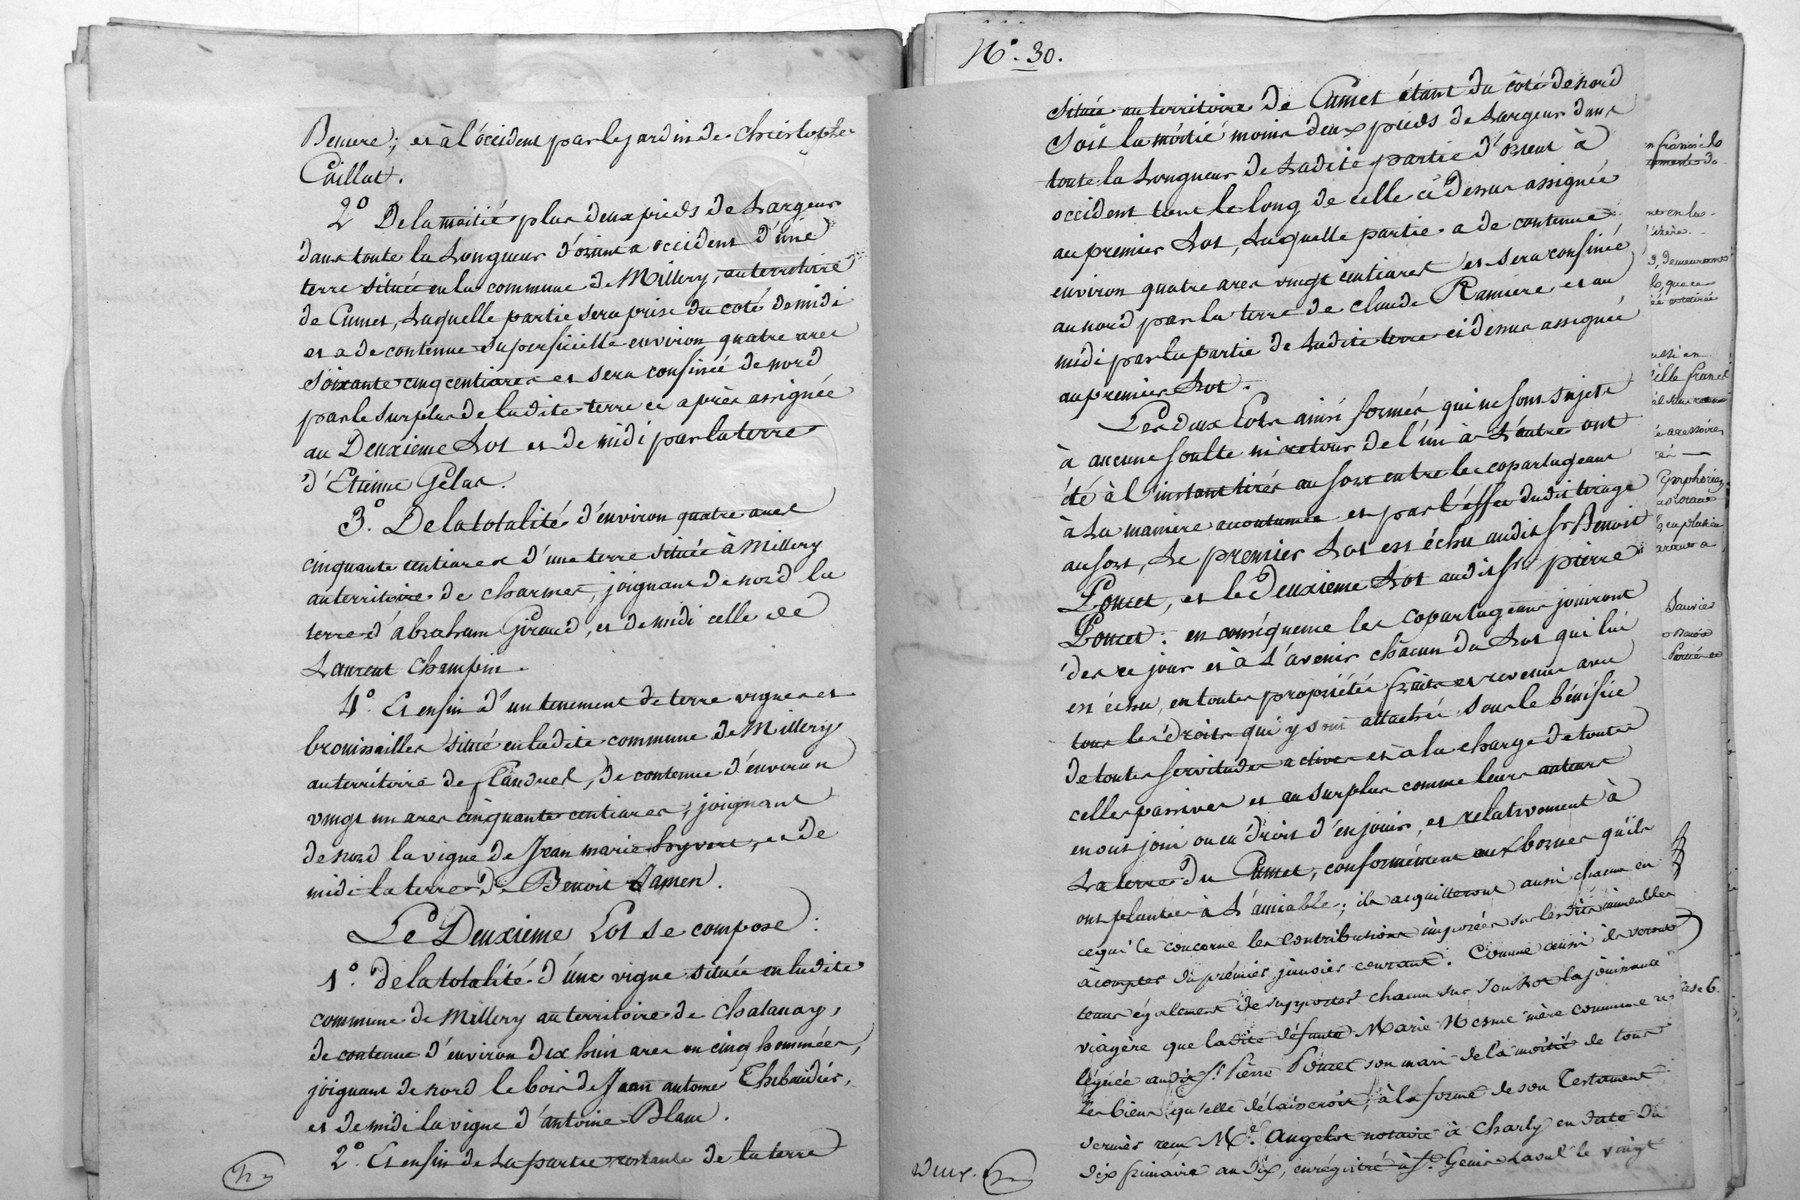 Beucre; et à l'occident par le jardin de christophe
Caillat.
2° De la moitié plus deux pieds de Largeur
dans toute la Longueur d'orient a occident d'une
terre située en la commune de Millery, au territoire
de Cumet, Laquelle partie sera prise du coté de midi
et a de contenue superficielle environ quatre ares
soixante cinq centiares et sera confinée de nord
par le surplus de ladite terre ci après assignée
au Deuxieme Lot et de midi par la terre
d'Etienne Gelas.
3°. De la totalité d'environ quatre ares
cinquante centiares d'une terre située à Millery
au territoire de charmes, joignant de nord la
terre d'abraham Giraud, et de midi celle de
Laurent champin.
4°. Et enfin d'un tenement de terre vignes et
brouissailles situé en ladite commune de Millery
au territoire de flandres, de contenue d'environ
vingt un ares cinquante centiares, joignant
de nord la vigne de Jean marie hyvert, et de
midi la terre de Benoit Lamen.
Le Deuxieme Lot se compose :
1°. de la totalité d'une vigne située en ladite
commune de Millery au territoire de chalanay,
de contenue d'environ dix huit ares ou cinq hommées,
joignant de nord le bois de Jean antoine Thibaudier,
et de midi la vigne d'antoine Blanc.
2°. Et enfin de La partie restante de la terre
N°. 30.
située au territoire de Cumet étant du côté de nord
soit la moitié moins deux pieds de Largeur dans
toute la Longueur de Ladite partie d'orient à
occident tout le long de celle ci dessus assignée
au premier Lot, Laquelle partie a de contenue
environ quatre ares vingt centiares et sera confinée
au nord par la terre de claude Ramiere et au
midi par la partie de Ladite terre ci dessus assignée
au premier Lot.
Les deux Lots ainsi formés qui ne sont sujets
à aucune soulte ni retour de l'un à L'autre ont
été à l'instant tirés au sort entre les copartageans
à La maniere accoutumée et par l'effet dudit tirage
au sort, Le premier Lot est échu audit Sr Benoit
Poncet, et le Deuxieme Lot audit Sr pierre
Poncet : en conséquence les copartageans jouiront
des ce jour et à L'avenir chacun du Lot qui lui
est échu, en toutes propriétés fruits et revenus avec
tous les droits qui y sont attachés sous le bénéfice
de toutes servitudes actives et à la charge de toutes
celles passives et au surplus comme leurs auteurs
en ont joui ou eu droit d'en jouir, et relativement à
La terre du Cumet, conformément aux bornes qu'ils
ont plantées à L'amiable; ils acquitteront aussi chacun en
ce qui le concerne les contributions imposées sur lesdits immeubles
à compter du premier janvier courant. Comme aussi ils seront
tenus également de supporter chacun sur son Lot la jouissance
viagère que ladite défunte Marie Mesme mère commune a
léguée audit Sr. Pierre Poncet son mari de la moitié de tous
les biens qu'elle délaisseroit, à la forme de son Testament
dernier reçu Me. Angelot notaire à Charly en date du
dix frimaire an dix, enregistré à St. Genis Laval le vingt
Deux.